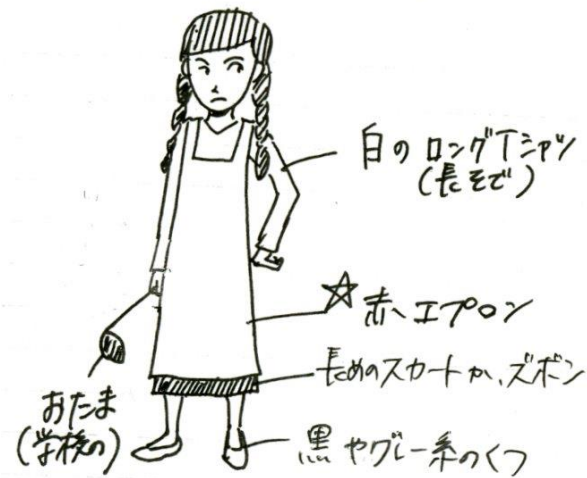 白の ロングTシャツ
(長そで)
☆赤エプロン
長めのスカートか、ズボン
おたま
(学校の)
黒やグレー系のくつ